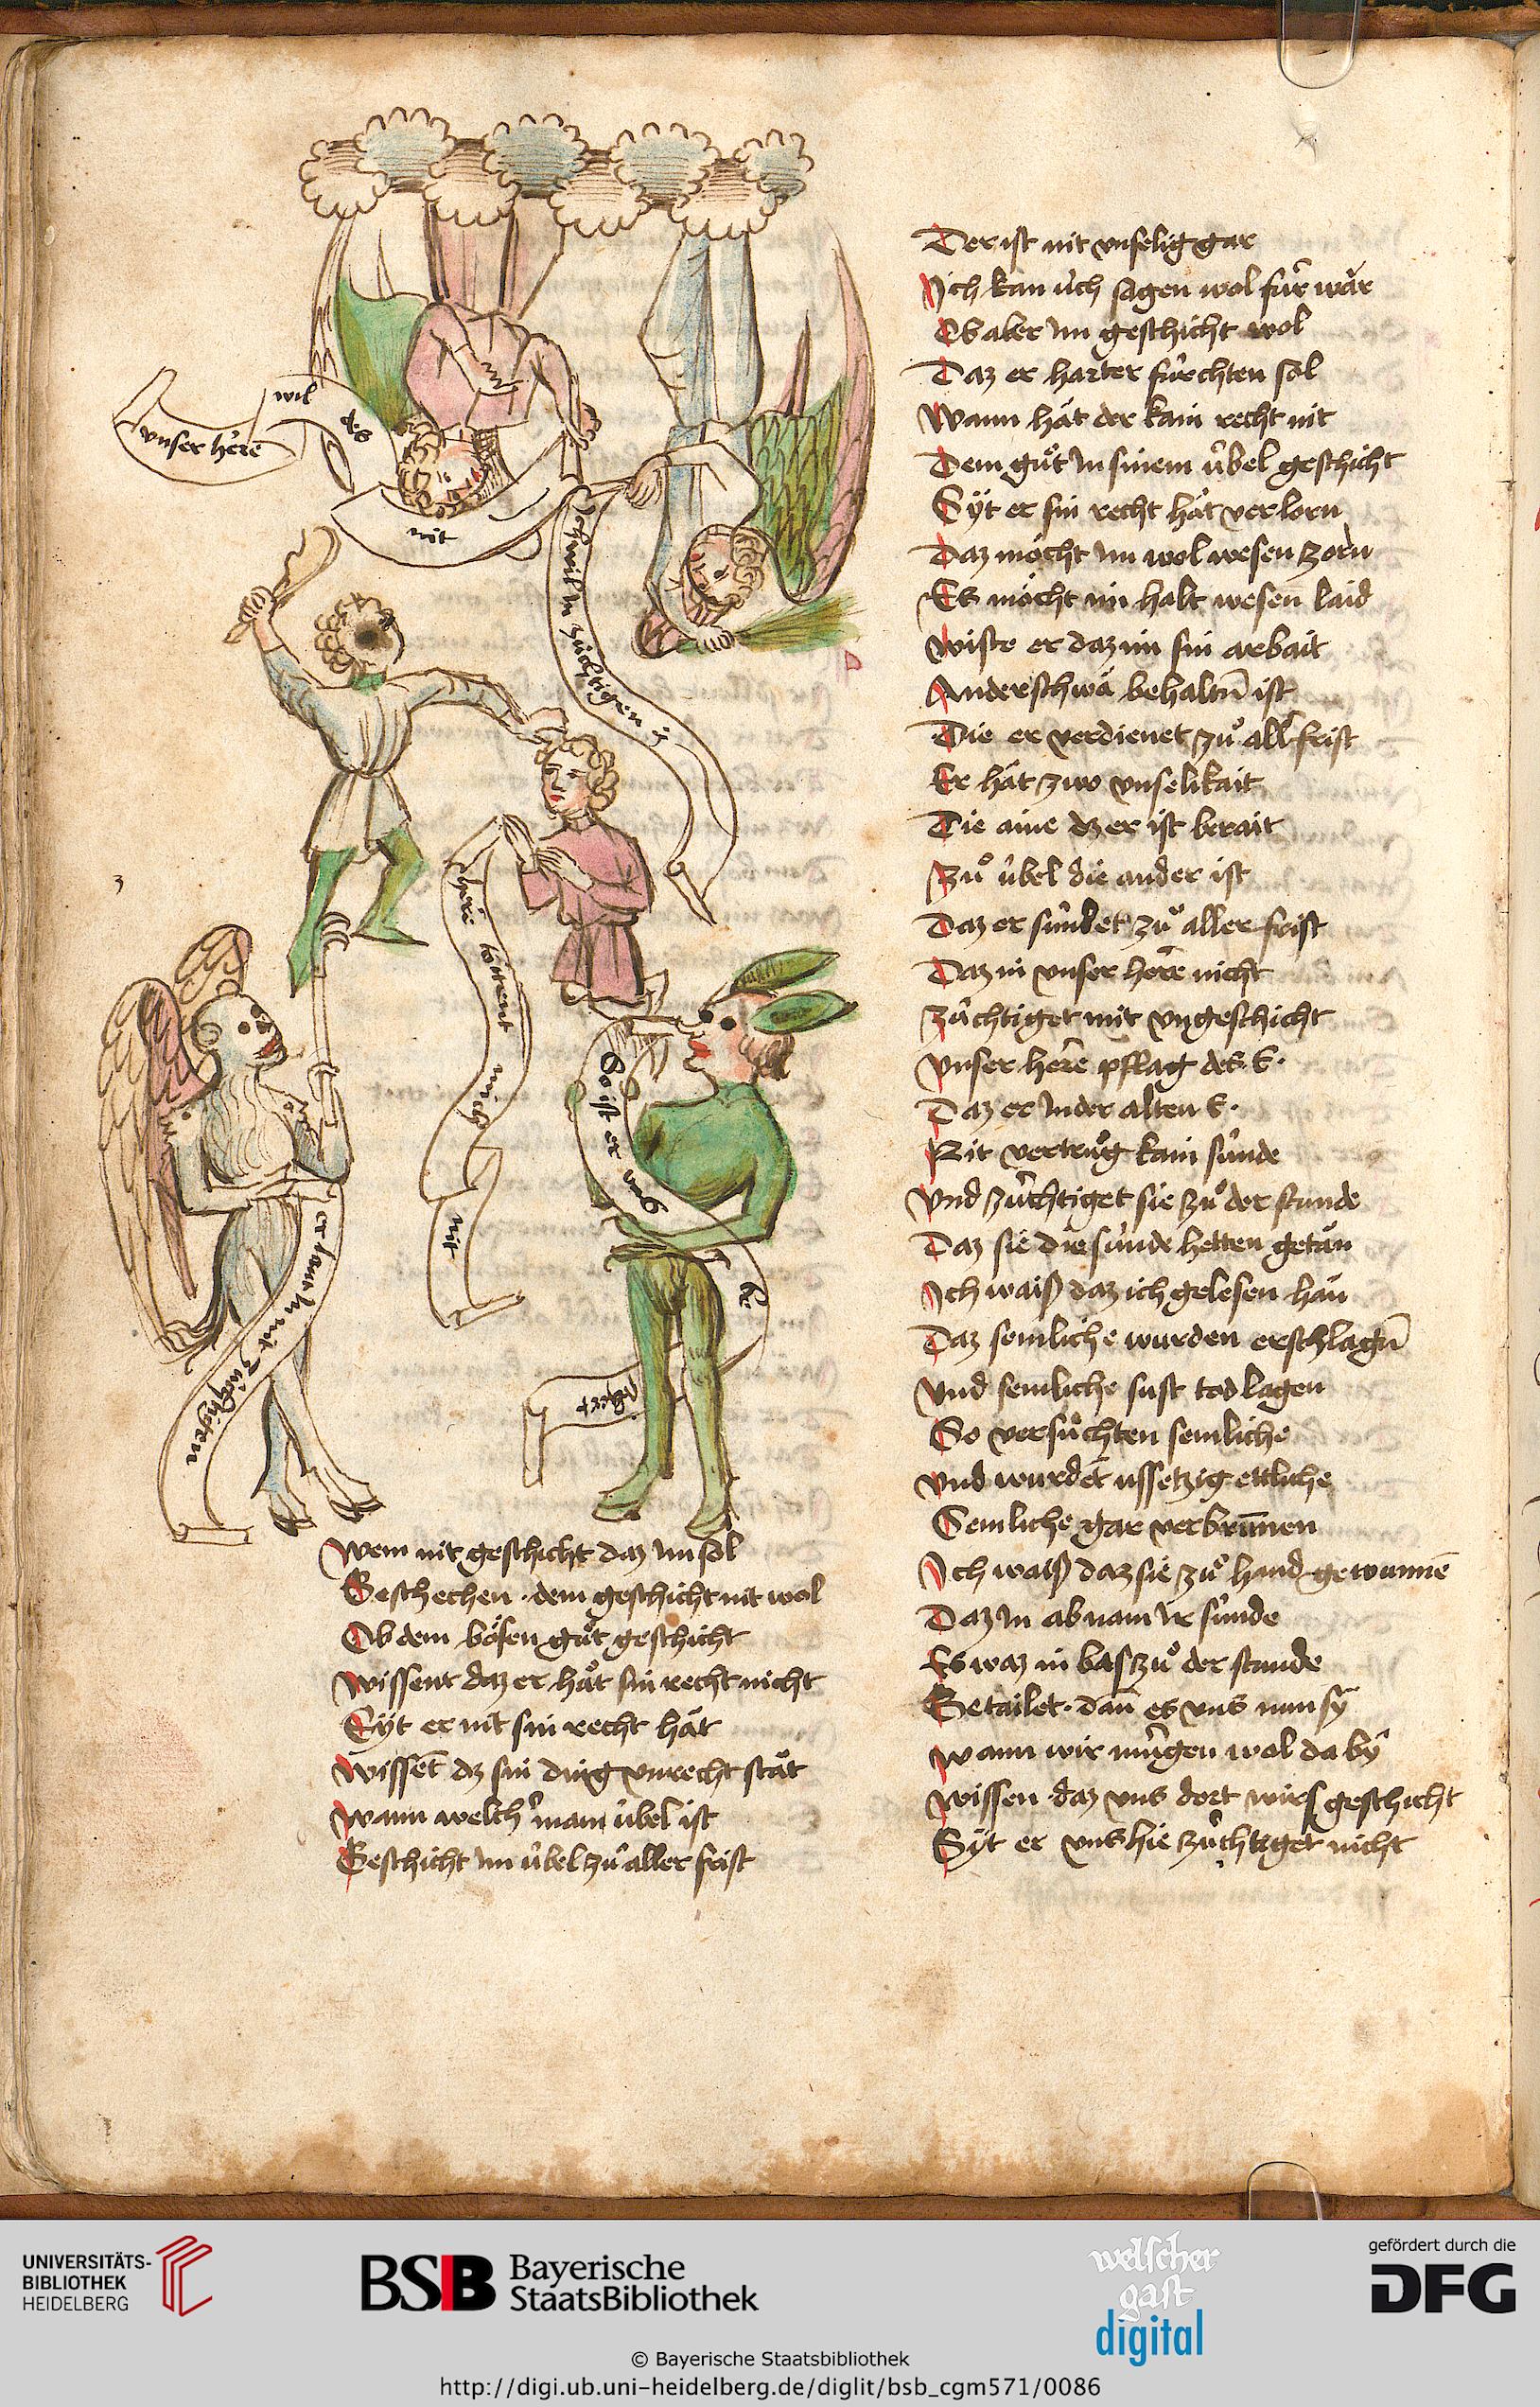 vnser here
wil
des
nit
Ich wil in züchtigen
here
töttent
mich
nit
So ist er vns
er haut in nit züchtigen
3
Wem nit geschicht daz im sol
Geschechen · dem geschicht nit wol
Ob dem bösen guͦt geschicht
Wissent daz er hät sin recht nicht
Syt er nit sin recht hät
Wissēt dz sin ding vnrecht stät
Wann welch man übel ist
Geschicht im übel zuͦ aller frist
Der ist nit vnselig gar
Ich kan üch sagen wol für wär
Ob aber im geschicht wol
Daz er harter fürchten sol
Wann hät der kain recht nit
Dem guͦt in sinem übel geschicht
Syt er sin recht hät verlorn
Daz möcht im wol wesen zorn
Es möcht im halt wesen laid
Wiste er daz im sin arbait
Anderschwä behaltn̄ ist
Die er verdienet zuͦ all frist
Er hät zwo vnselikait
Die aine dz er ist berait
Zuͦ übel die ander ist
Daz er sündet zuͦ aller frist
Daz in vnser herr nicht
Züchtiget mit vngeschicht
Vnser here pflag des E·
Daz er in der alten E·
Nit vertruͦg kain sünde
Vnd züchtiget sie zuͦ der stunde
Daz sie die sünde hetten getän
Ich waiß daz ich gelesen hän
Daz semliche wurden erschlagn̄
Vnd semliche sust tod lagen
So versuͦchten semliche
Vnd wurdēt ussetzig ettliche
Semliche gar verbrunnen
Ich waiß daz sie zuͦ hand gewunnē
Daz in ab nam ir sünde
Es waz in bas zuͦ der stunde
Getailet · dan̄ es vns nun sy
Wann wir mügen wol da by
Wissen daz vns dort wirs geschicht
Syt er vns hie züchtiget nicht
UNIVERSITÄTS-
BIBLIOTHEK
HEIDELBERG
BSB Bayerische
StaatsBibliothek
welscher
gast
digital
gefördert durch die
DFG
© Bayerische Staatsbibliothek
http://digi.ub.uni-heidelberg.de/diglit/bsb_cgm571/0086